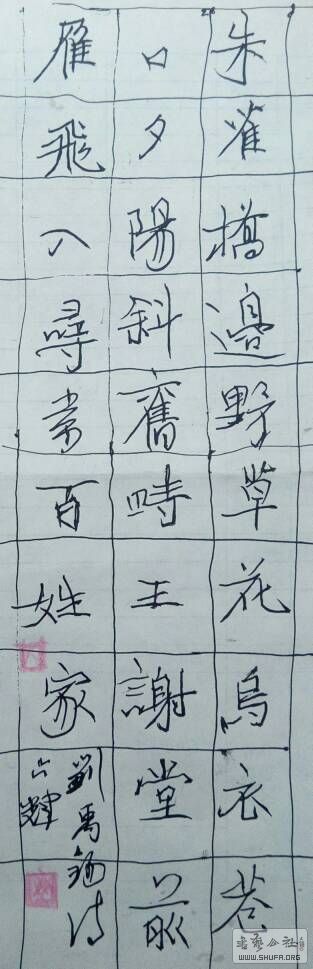 朱雀橋邊野草花烏衣巷
口夕陽斜舊時王謝堂前
雁飛入尋常百姓家
劉禹錫诗
書藝公社
WWW.SHUFA.ORG